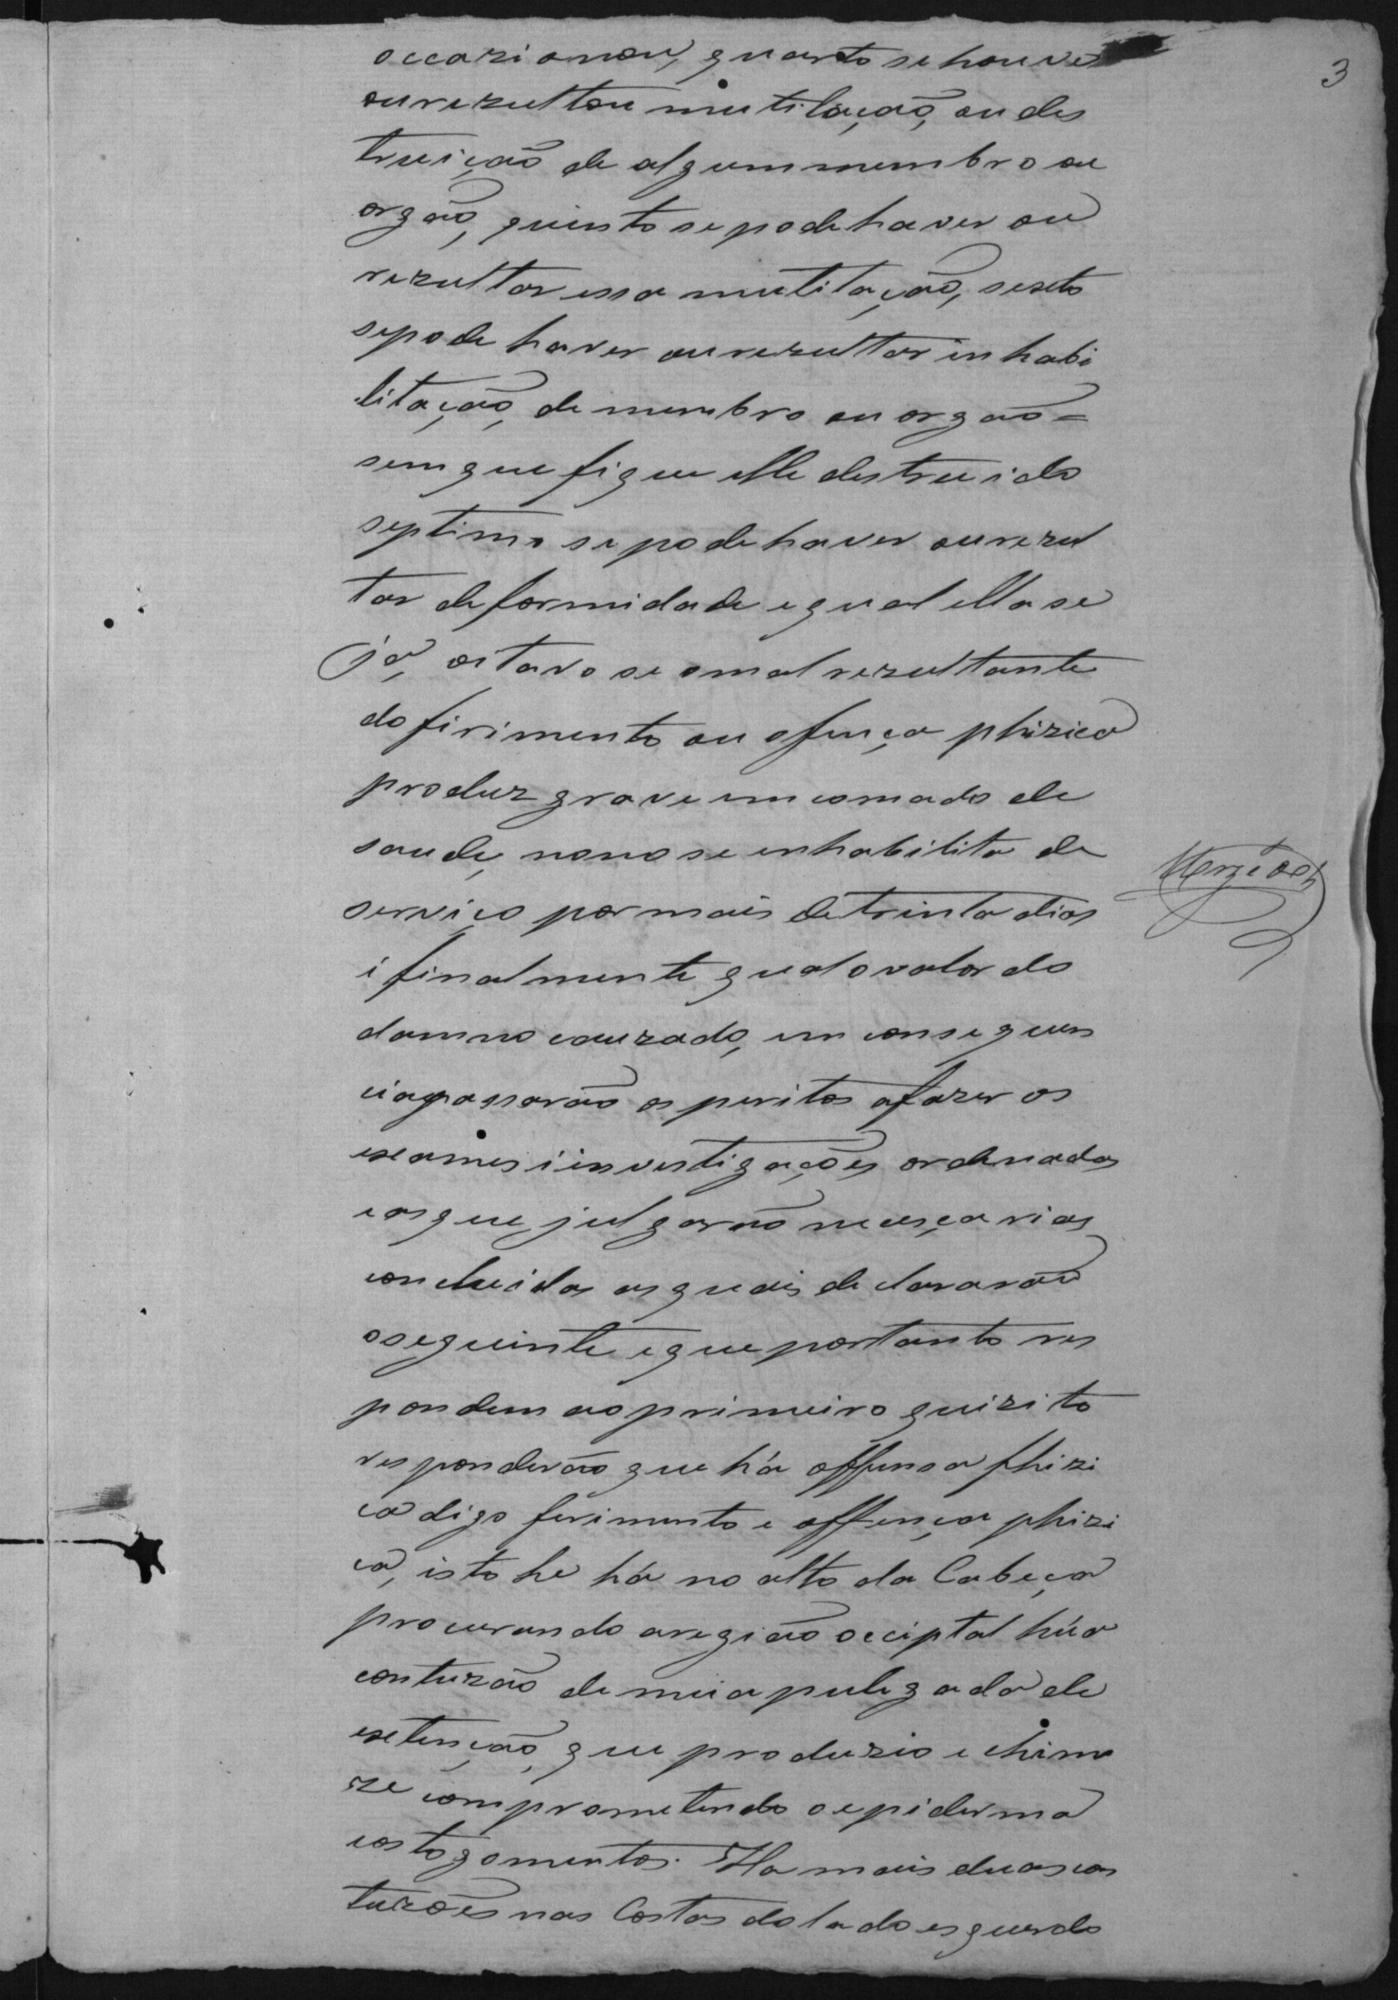 3
occazionou, quarto se houve
ou rezultou mutilação, ou des
truição de algum membro ou
orgão, quinto se pode haver ou
rezultar essa mutilação, sexto
se pode haver ou rezultar inhabi
litação, de membro ou orgão =
sem que fique elle destruido
septimo se pode haver ou rezul
tar deformidade e qual ella se
ja, oitavo se o mal rezultante
do firimento ou ofença phizica
produz grave incomado de
saude, nono se inhabilita de
serviço por mais de trinta dias
i finalmente qual o valor do
damno cauzado, em consequen
cia passarão os peritos a fazer os
exames i investigações ordenadas
e as que julgarão necesçarias
concluidas as quais declararão
o seguinte e que portanto res
pondem ao primeiro quizito
responderão que há offensa fhizi
ca digo ferimento e offença phizi
ca, isto he há no alto da Cabeça
procurando a região occiptal húa
contuzão de meia pulegada de
extenção, que produzio echimo
ze comprometendo o epiderma
e os togomentos. Ha mais duas con
tuzões nas Costas do lado esquerdo